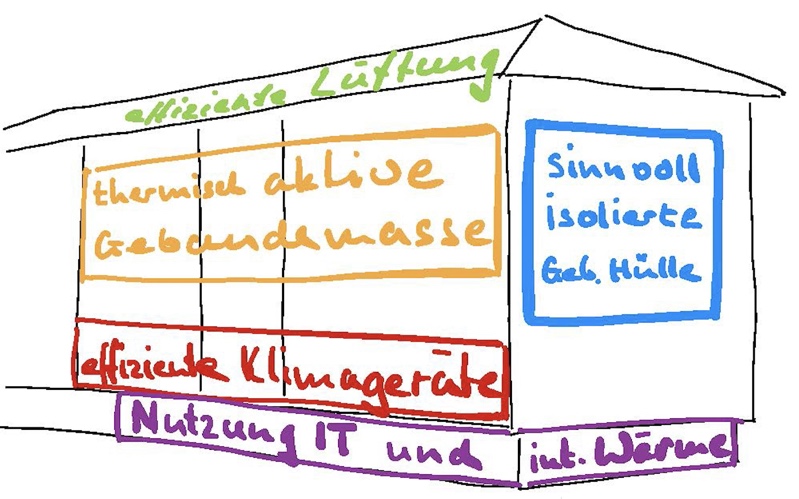 effiziente Lüftung
thermisch aktive
Gebäudemasse
Sinnvoll
isolierte
Geb. Hülle
effiziente Klimageräte
Nutzung IT und int. Wärme